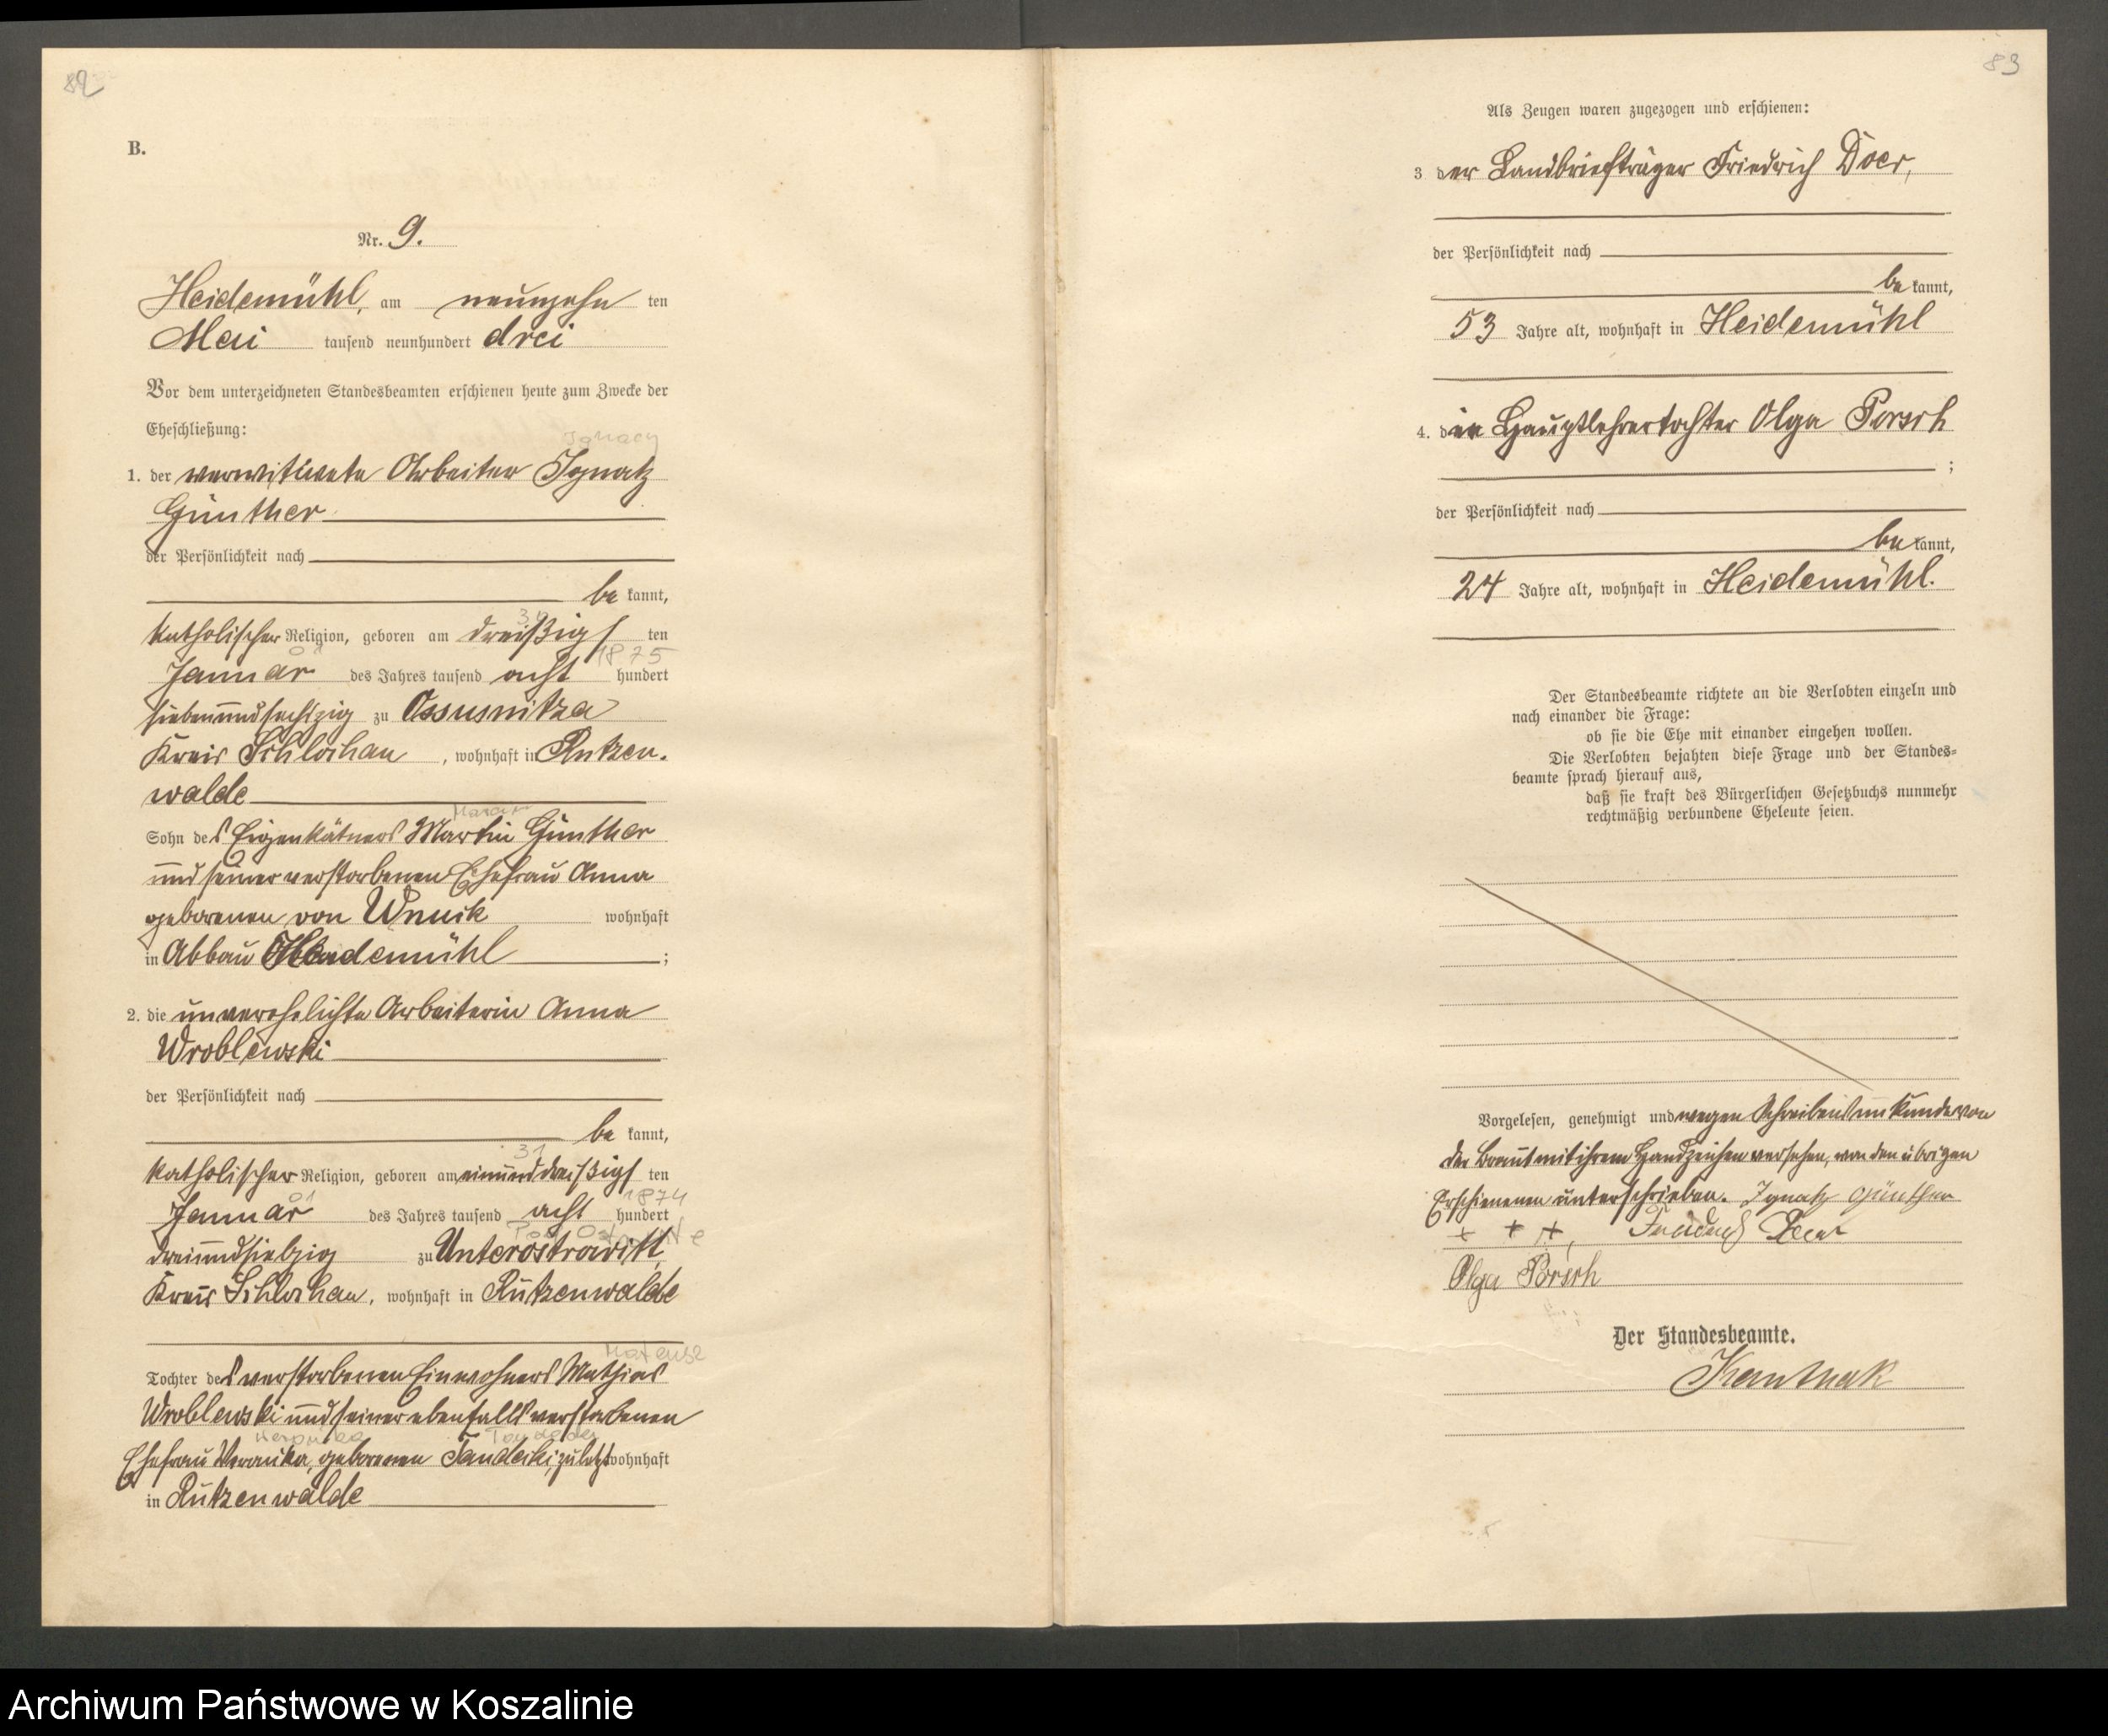 82
B.
Nr. 9.
Heidemühl, am neunzehn ten
Mai tausend neunhundert drei
Vor dem unterzeichneten Standesbeamten erschienen heute zum Zwecke der
Eheschließung:
Ignacy
1. der verwitwete Arbeiter Ignatz
Günther
der Persönlichkeit nach
be kannt,
30
katholischer Religion, geboren am dreißigs ten
01 1875
Januar des Jahres tausend acht hundert
siebenundsechszig zu Ossusnitza
Kreis Schlochau, wohnhaft in Rutzen-
walde
Marcin
Sohn des Eigenkätners Martin Günther
und seiner verstorbenen Ehefrau Anna
geborenen von Wnuck wohnhaft
in Abbau Heidemühl ;
2. die unverehelichte Arbeiterin Anna
Wroblewski
der Persönlichkeit nach
be kannt,
31
katholischer Religion, geboren am einunddreißigs ten
01 1874
Januar des Jahres tausend acht hundert
dreiundsiebzig zu Unterostrowitt,
Kreis Schlochau, wohnhaft in Rützenwalde
Mateusz
Tochter des verstorbenen Einwohners Mathias
Wroblewski und seiner ebenfalls verstorbenen
Weronika
Ehefrau Veronika, geborenen Tandecki, zuletzt wohnhaft
in Rützenwalde
83
Als Zeugen waren zugezogen und erschienen:
3 der Landbriefträger Friedrich Doer,
der Persönlichkeit nach
be kannt,
53 Jahre alt, wohnhaft in Heidemühl
4. die Hauptlehrertochter Olga Porsch
;
der Persönlichkeit nach
be kannt,
24 Jahre alt, wohnhaft in Heidemühl.
Der Standesbeamte richtete an die Verlobten einzeln und
nach einander die Frage:
ob sie die Ehe mit einander eingehen wollen.
Die Verlobten bejahten diese Frage und der Standes-
beamte sprach hierauf aus,
daß sie kraft des Bürgerlichen Gesetzbuchs nunmehr
rechtmäßig verbundene Eheleute seien.
Vorgelesen, genehmigt und wegen Schreibensunkunde von
der Braut mit ihrem Handzeichen versehen, von den übrigen
Erschienenen unterschrieben. Ignatz Günther
+ + +, Friedrich Doer
Olga Porsch
Der Standesbeamte.
Archiwum Państwowe w Koszalinie